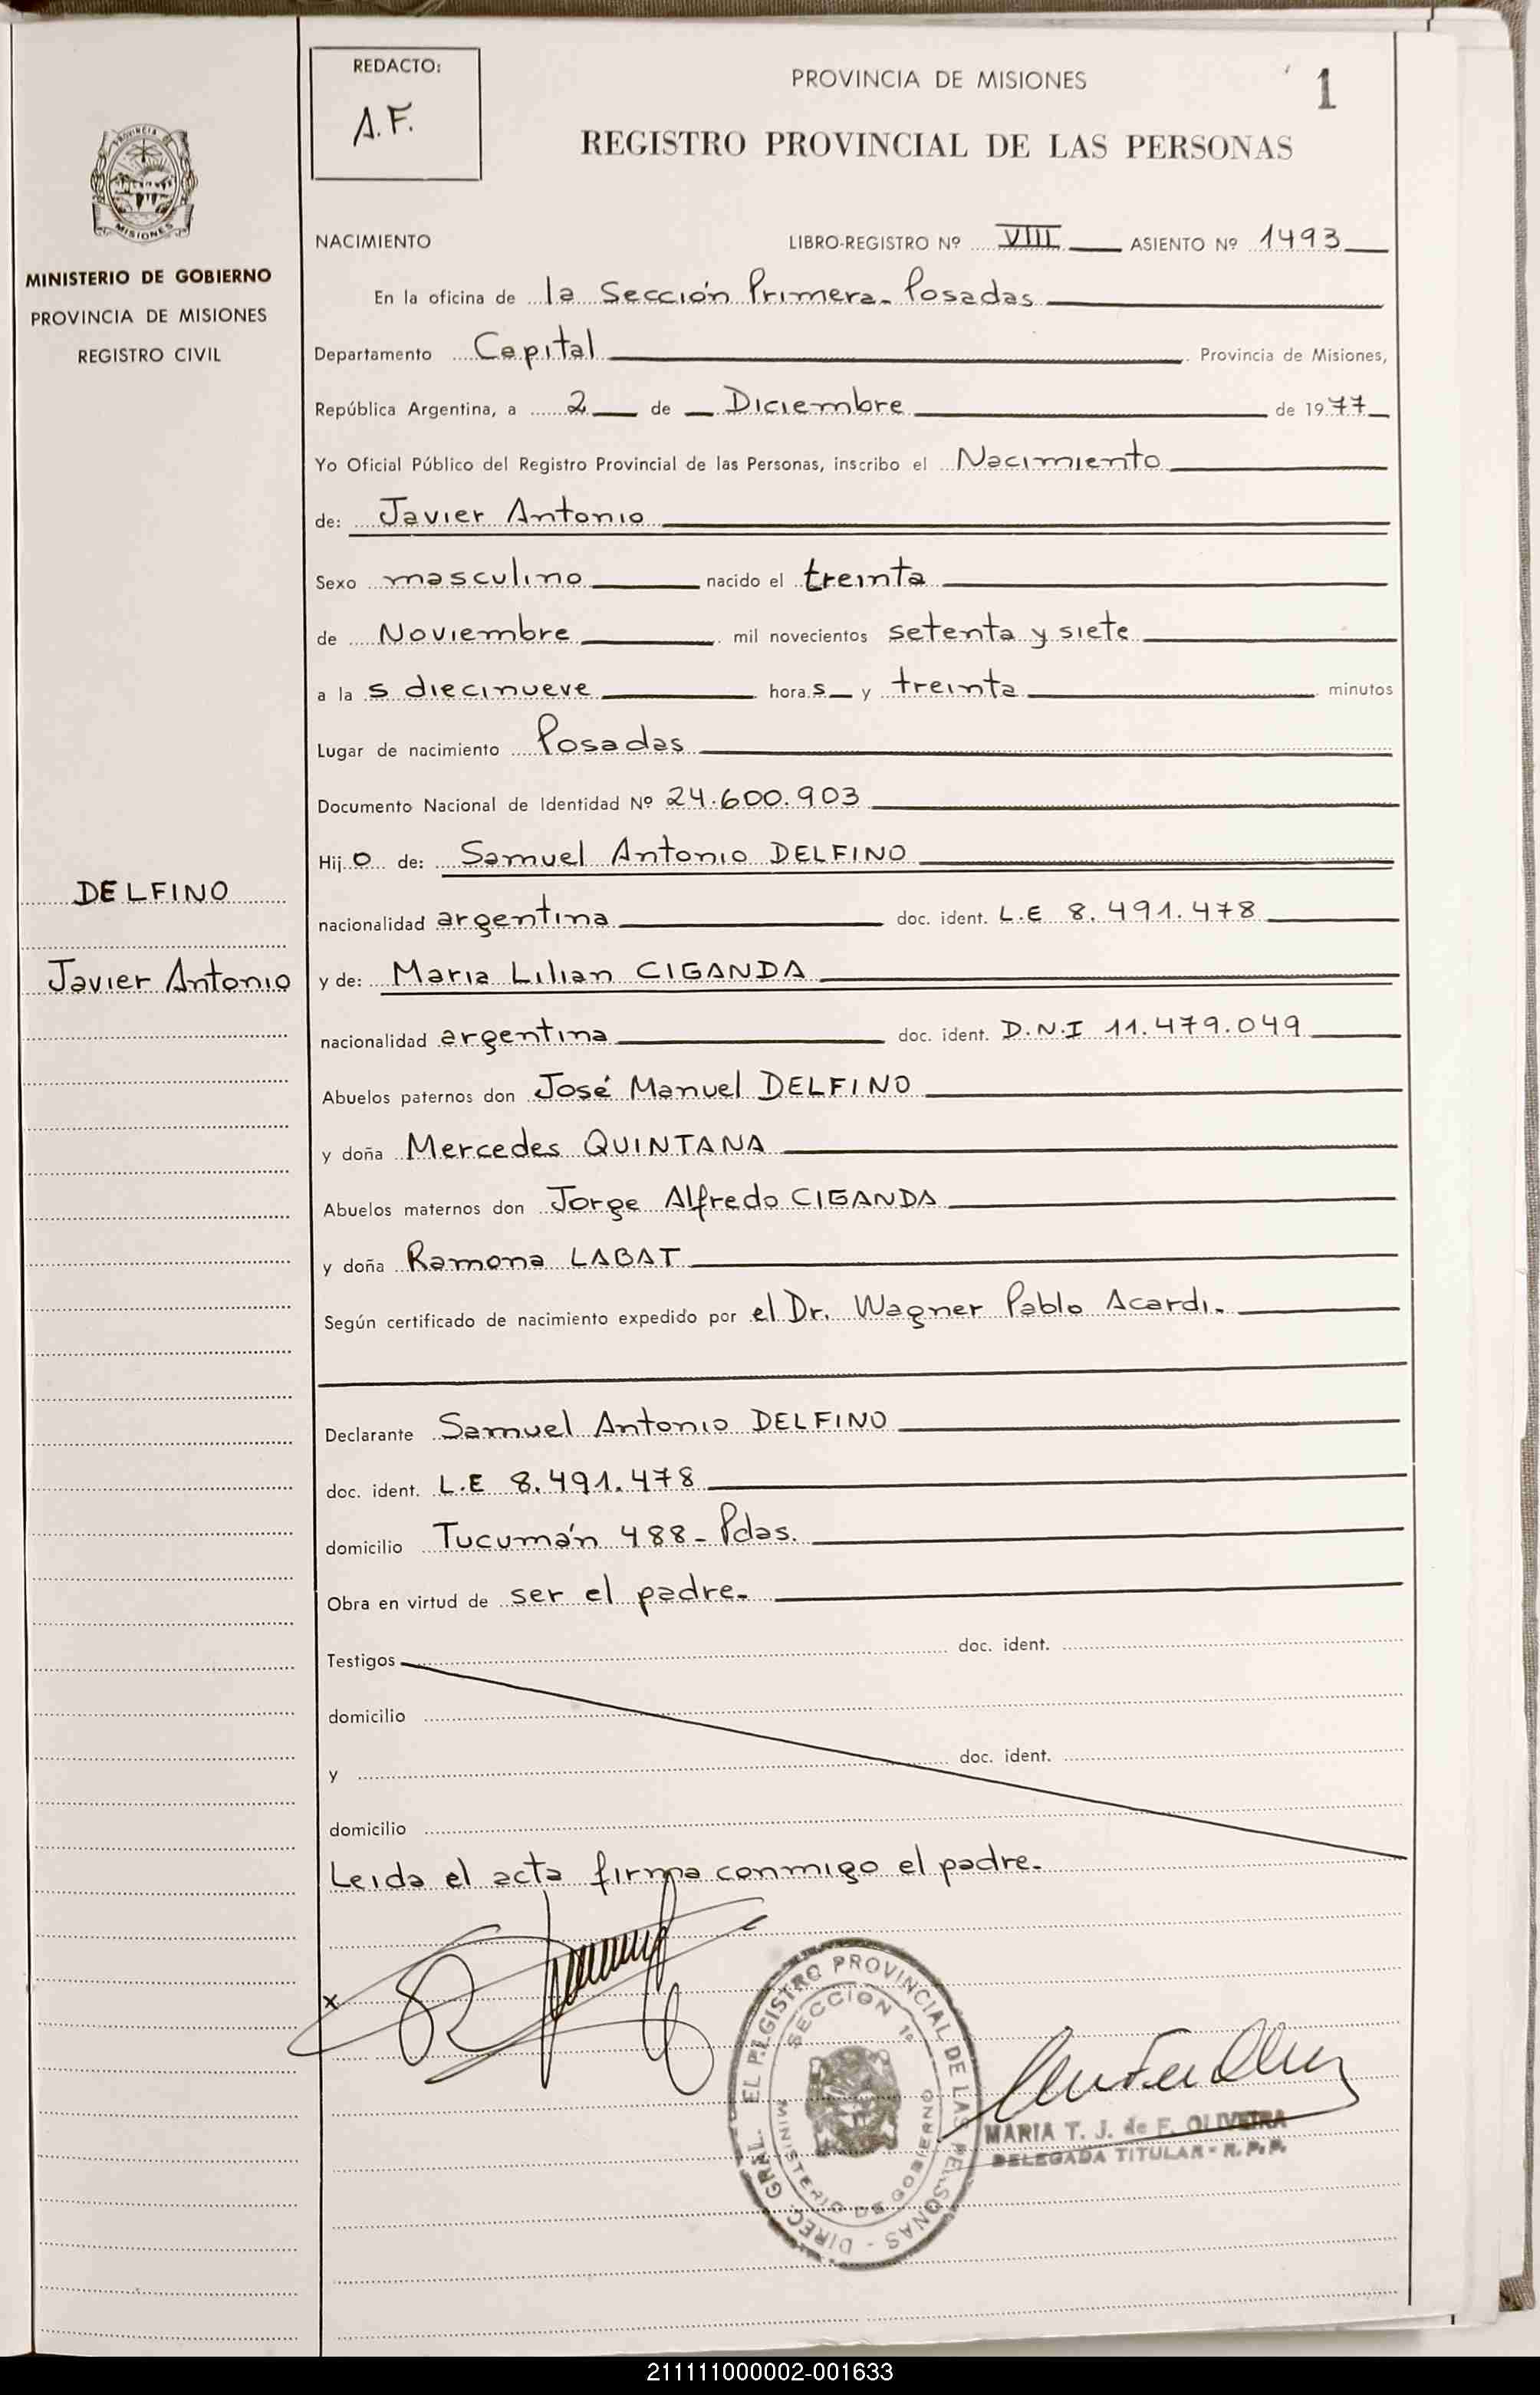 REDACTO:
A.F.
PROVINCIA DE MISIONES
1
REGISTRO PROVINCIAL DE LAS PERSONAS
PROVINCIA DE
MISIONES
MINISTERIO DE GOBIERNO
PROVINCIA DE MISIONES
REGISTRO CIVIL
DELFINO
Javier Antonio
NACIMIENTO LIBRO-REGISTRO Nº VIII ASIENTO Nº 1493
En la oficina de la Sección Primera - Posadas
Departamento Capital Provincia de Misiones,
República Argentina, a 2 de Diciembre de 1977
Yo Oficial Público del Registro Provincial de las Personas, inscribo el Nacimiento
de: Javier Antonio
Sexo masculino nacido el treinta
de Noviembre mil novecientos setenta y siete
a la s diecinueve hora s y treinta minutos
Lugar de nacimiento Posadas
Documento Nacional de Identidad Nº 24.600.903
Hij o de: Samuel Antonio DELFINO
nacionalidad argentina doc. ident. L.E 8.491.478
y de: Maria Lilian CIGANDA
nacionalidad argentina doc. ident. D.N.I 11.479.049
Abuelos paternos don José Manuel DELFINO
y doña Mercedes QUINTANA
Abuelos maternos don Jorge Alfredo CIGANDA
y doña Ramona LABAT
Según certificado de nacimiento expedido por el Dr. Wagner Pablo Acardi.
Declarante Samuel Antonio DELFINO
doc. ident. L.E 8.491.478
domicilio Tucumán 488 - Pdas.
Obra en virtud de ser el padre.
Testigos doc. ident.
domicilio
y doc. ident.
domicilio
Leida el acta firma conmigo el padre.
x
DIREC. GRAL. EL REGISTRO PROVINCIAL DE LAS PERSONAS -
SECCION 1a
MINISTERIO DE GOBIERNO
MARIA T. J. de F. OLIVEIRA
DELEGADA TITULAR - R. P. P.
211111000002-001633